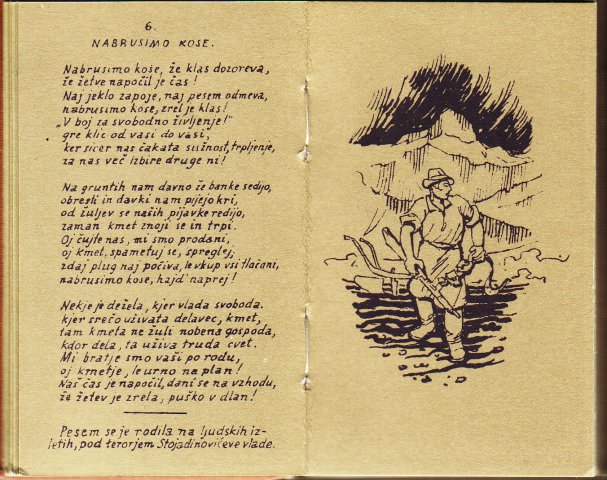 6.
NABRUSIMO KOSE.
Nabrusimo kose, že klas dozoreva,
že žetve napočil je čas!
Naj jeklo zapoje, naj pesem odmeva,
nabrusimo kose, zrel je klas!
„V boj za svobodno življenje!"
gre klic od vasi do vasi,
ker sicer nas čakata sužnost, trpljenje,
za nas več izbire druge ni!
Na gruntih nam davno že banke sedijo,
obresti in davki nam pijejo kri,
od žuljev se naših, pijavke redijo,
zaman kmet znoji se in trpi.
Oj čujte nas, mi smo prodani,
oj kmet, spametuj se, spreglej,
zdaj plug naj počiva, le vkup vsi tlačani,
nabrusimo kose, hajd' naprej!
Nekje je dežela, kjer vlada svoboda.
kjer srečo uživata delavec, kmet,
tam kmeta ne žuli nobena gospoda,
kdor dela, ta uživa truda cvet.
Mi bratje smo vaši po rodu,
oj kmetje, le urno na plan!
Naš čas je napočil, dani se na vzhodu,
že žetev je zrela, puško v dlan!
Pesem se je rodila na ljudskih iz-
letih, pod terorjem Stojadinovićeve vlade.